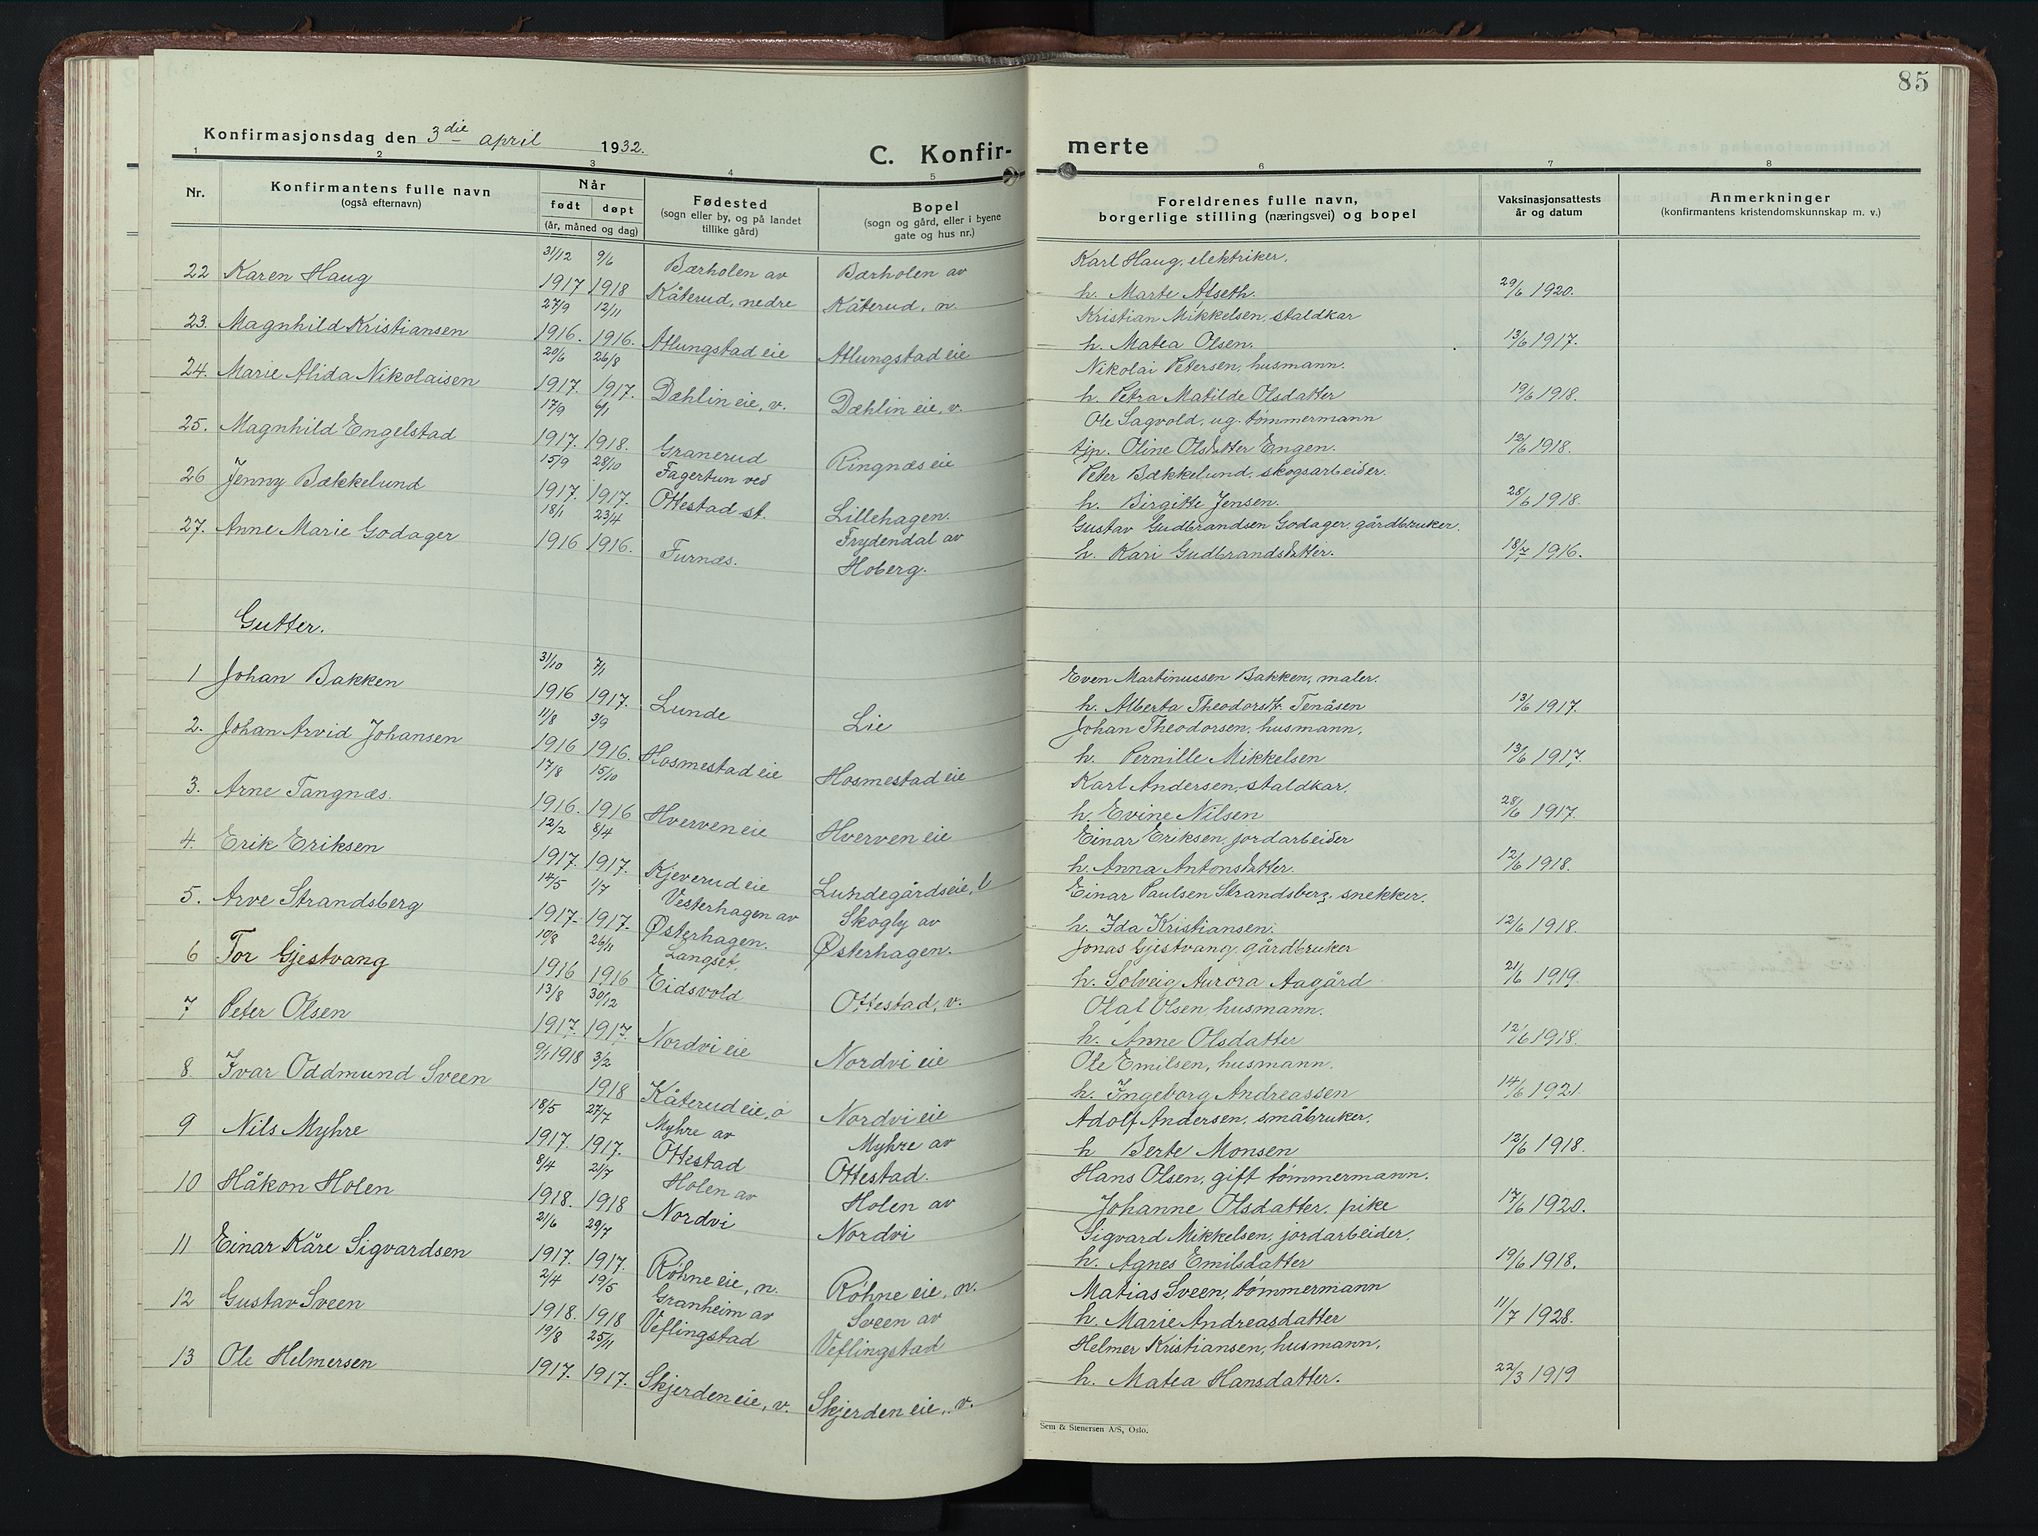 85
Konfirmasjonsdag den 3die april 1932.
C. Konfir-
merte
1 2 3 4 5 6 7 8
Nr.
Konfirmantens fulle navn
(også efternavn)
Når
født døpt
(år, måned og dag)
Fødested
(sogn eller by, og på landet
tillike gård)
Bopel
(sogn og gård, eller i byene
gate og hus nr.)
Foreldrenes fulle navn,
borgerlige stilling (næringsvei) og bopel
Vaksinasjonsattests
år og datum
Anmerkninger
(konfirmantens kristendomskunnskap m. v.)
31/12 9/6 Karl Haug, elektriker,
22 Karen Haug 1917 1918 Bærholen av Bærholen av
Kåterud, nedre Kåterud, n. h. Marte Alseth. 29/6 1920.
27/9 12/11 Kristian Mikkelsen, staldkar
23. Magnhild Kristiansen 1916. 1916. Atlungstad eie Atlungstad eie h. Matea Olsen. 13/6 1917.
20/6 26/8 Nikolai Petersen, husmann.
24. Marie Alida Nikolaisen 1917. 1917. Dæhlin eie, v. Dæhlin eie, v. h. Petra Matilde Olsdatter 19/6 1918.
17/9 6/1 Ole Sagvold, ug. tømmermann
25. Magnhild Engelstad 1917. 1918. Granerud Ringnæs eie tjp. Oline Olsdatter Engen. 12/6 1918.
15/9 28/10 Fagertun ved Peter Bækkelund, skogsarbeider.
26 Jenny Bækkelund 1917. 1917. Ottestad st. Lillehagen. h. Birgitte Jensen. 28/6 1918.
18/1 23/4 Frydendal av Gustav Gudbrandsen Godager, gårdbruker.
27. Anne Marie Godager 1916 1916. Furnæs. Hoberg. h. Kari Gudbrandsdatter. 18/7 1916.
Gutter.
31/10 7/1 Even Martinussen Bakken, maler.
1 Johan Bakken 1916 1917. Lunde Lie h. Alberta Theodorsdt. Tenåsen 13/6 1917.
11/8 3/9 Johan Theodorsen, husmann,
2. Johan Arvid Johansen 1916 1916. Hosmestad eie Hosmestad eie h. Pernille Mikkelsen 13/6 1917.
17/8 15/10 Karl Andersen, staldkar,
3. Arne Tangnæs. 1916. 1916 Hverven eie Hverven eie h. Evine Nilsen 28/6 1917.
12/2 8/4 Einar Eriksen, jordarbeider
4. Erik Eriksen 1917. 1917. Kjeverud eie Lundegårdseie, l h. Anna Antonsdatter. 12/6 1918.
14/5 1/7 Vesterhagen av Skogly av Einar Paulsen Strandsberg, snekker.
5. Arve Strandsberg 1917- 1917- Østerhagen. Østerhagen. h. Ida Kristiansen. 12/6 1918.
10/8 26/11 Langset, Jonas Gjestvang, gårdbruker
6 Tor Gjestvang 1916 1916 Eidsvold Ottestad, v. h. Solveig Aurora Aagård 21/6 1919.
13/8 30/12 Olaf Olsen, husmann.
7 Peter Olsen 1917. 1917. Nordvi eie Nordvi eie h. Anne Olsdatter 12/6 1918.
9/1 1918 3/2 Ole Emilsen, husmann,
8 Ivar Oddmund Sveen 1918 Kåterud eie, ø Nordvi eie h. Ingeborg Andreassen 14/6 1921.
18/5 27/7 Myhre av Myhre av Adolf Andersen, småbruker.
9 Nils Myhre 1917. 1917. Ottestad Ottestad. h Berte Monsen 12/6 1918.
8/4 21/7 Holen av Holen av Hans Olsen, gift tømmermann.
10 Håkon Holen 1918. 1918 Nordvi Nordvi Johanne Olsdatter, pike 17/6 1920.
21/6 29/7 Sigvard Mikkelsen, jordarbeider.
11 Einar Kåre Sigvardsen 1917. 1917. Røhne eie, n. Røhne eie, n. h. Agnes Emilsdatter 19/6 1918.
2/4 19/5 Granheim av Sveen av Matias Sveen, tømmermann
12 Gustav Sveen 1918. 1918 Veflingstad Veflingstad h. Marie Andreasdatter 11/7 1928.
19/8 25/11 Helmer Kristiansen, husmann,
13 Ole Helmersen 1917. 1917. Skjerden eie, v. Skjerden eie, v. h. Matea Hansdatter. 22/3 1919
Sem & Stenersen A/S, Oslo.